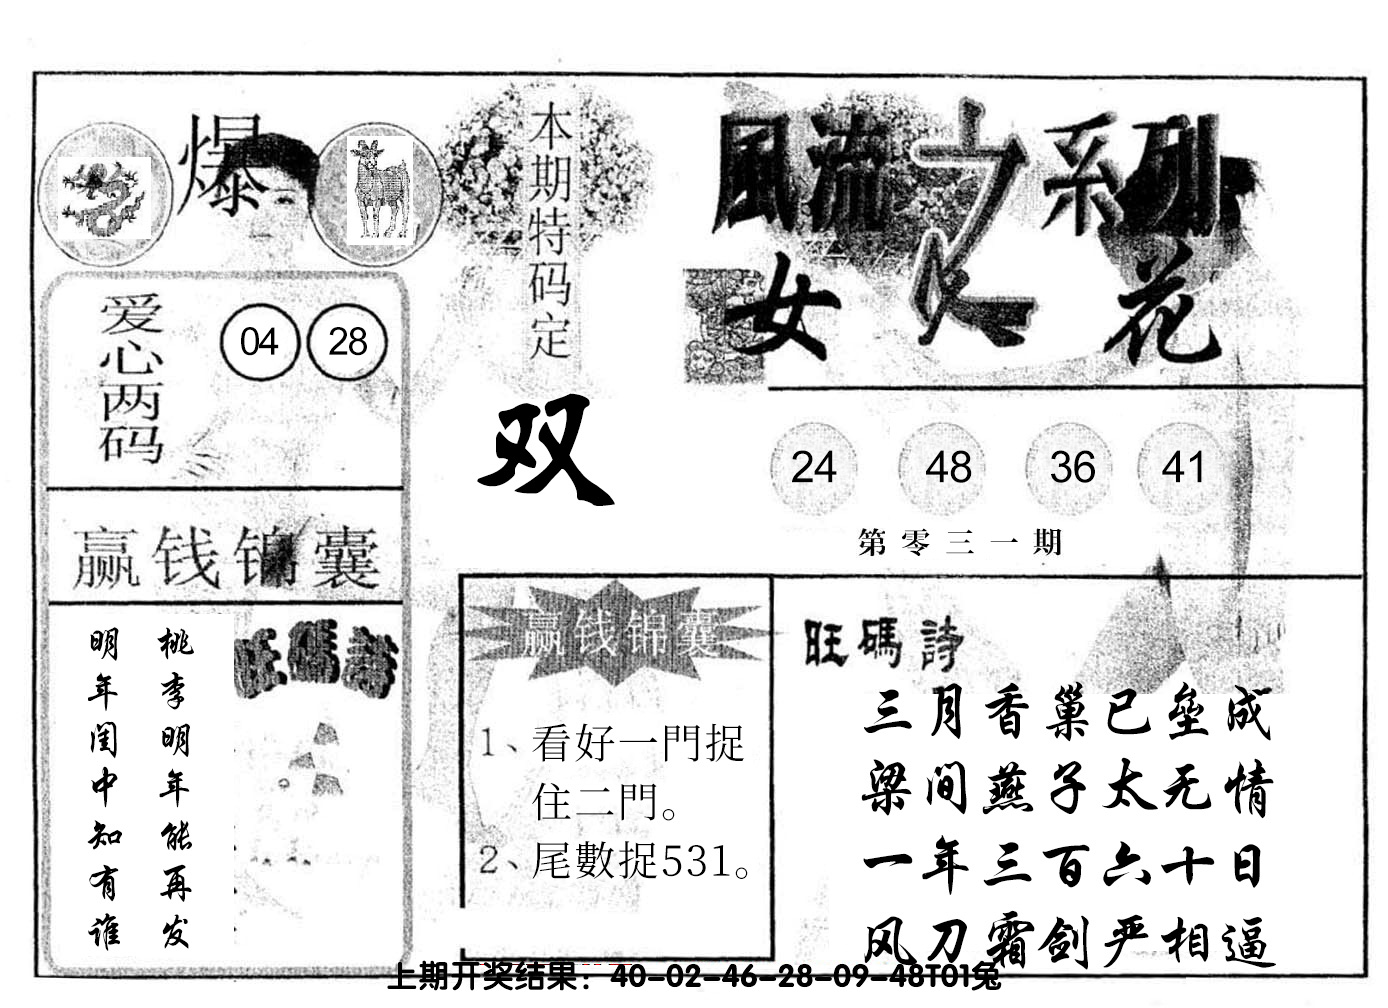 爆
本期特码定
双
風流之系列
女人花
爱心两码
04 28
24 48 36 41
第零三一期
赢钱锦囊
桃李明年能再发
明年闺中知有谁
旺碼詩
赢钱锦囊
1、看好一門捉
住二門。
2、尾數捉531。
旺碼詩
三月香巢已垒成
梁间燕子太无情
一年三百六十日
风刀霜剑严相逼
上期开奖结果：40-02-46-28-09-48T01兔